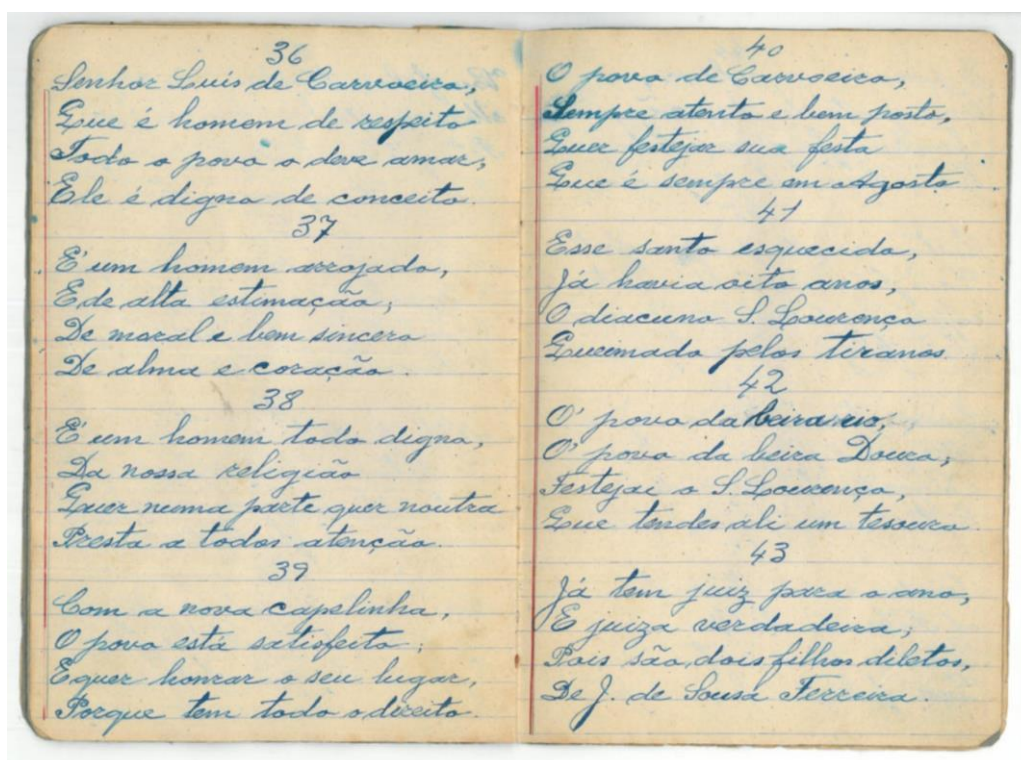 36
Senhor Luís de Carvoeiro,
Que é homem de respeito
Todo o povo o deve amar,
Ele é digno de conceito.
37
E' um homem arrojado,
E de alta estimação;
De moral e bem sincero
De alma e coração.
38
E' um homem todo digno,
Da nossa religião
Quer numa parte quer noutra
Presta a todos atenção.
39
Com a nova capelinha,
O povo está satisfeito;
E quer honrar o seu lugar,
Porque tem todo o direito.
40
O povo de Carvoeiro,
Sempre atento e bem posto,
Quer festejar sua festa
Que é sempre em Agosto
41
Esse santo esquecido,
Já havia oito anos,
O diacuno S. Lourenço
Queimado pelos tiranos.
42
O' povo da beira rio,
O' povo da beira Douro;
Festejai o S. Lourenço,
Que tendes ali um tesouro.
43
Já tem juiz para o ano,
E juiza verdadeira;
Pois são dois filhos diletos,
De J. de Sousa Ferreira.